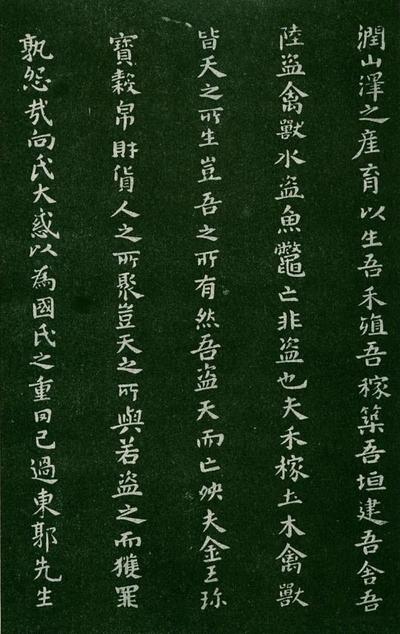 潤山澤之産育以生吾禾殖吾稼築吾垣建吾舍吾
陸盜禽獸水盜魚鼈亡非盜也夫禾稼土木禽獸
皆天之所生豈吾之所有然吾盜天而亡殃夫金玉珍
寶穀帛財貨人之所聚豈天之所與若盜之而獲罪
孰怨哉向氏大惑以為國氏之重罔已過東郭先生